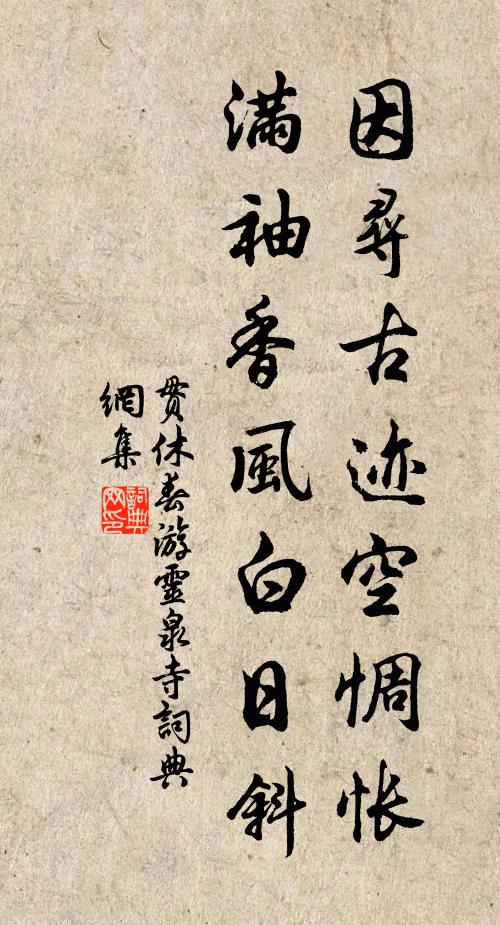 因尋古迹空惆怅
滿袖香風白日斜
貫休春游靈泉寺詞典
網集
詞典
网印